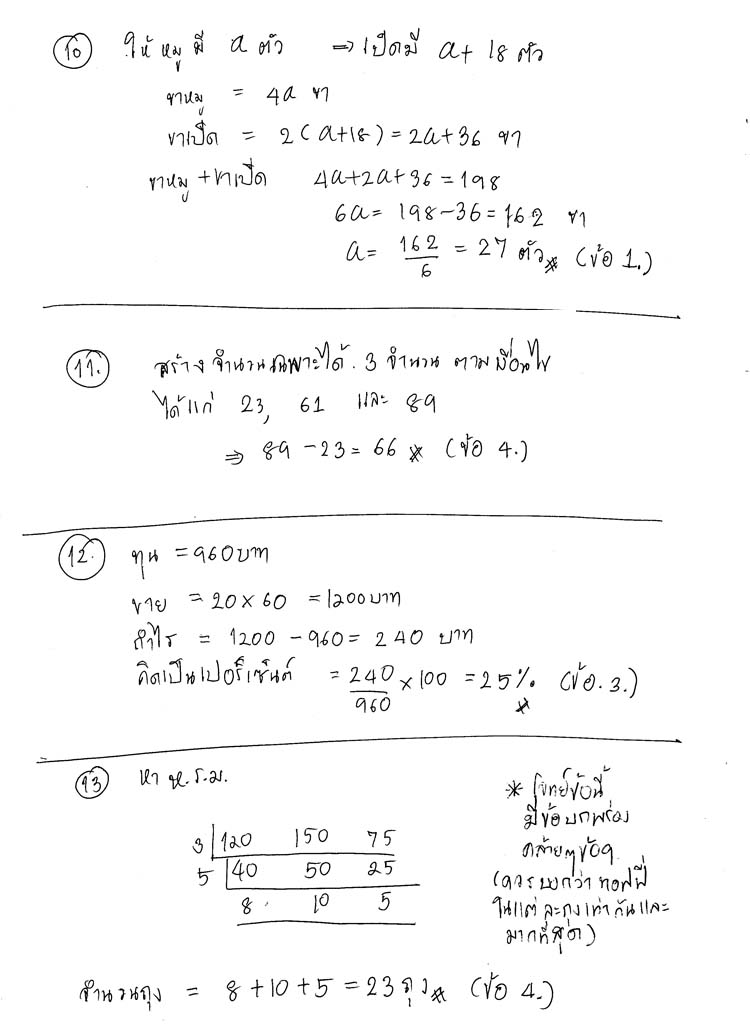 10 ให้ หมู มี a ตัว ⇒ เป็ดมี a + 18 ตัว
ขาหมู = 4a ขา
ขาเป็ด = 2(a+18) = 2a+36 ขา
ขาหมู + ขาเป็ด 4a+2a+36 = 198
6a = 198-36 = 162 ขา
a = 162/6 = 27 ตัว* (ข้อ 1.)
11. สร้างจำนวนเฉพาะได้ 3 จำนวน ตามเงื่อนไข
ได้แก่ 23, 61 และ 89
⇒ 89 - 23 = 66 * (ข้อ 4.)
12. ทุน = 960 บาท
ขาย = 20 × 60 = 1200 บาท
กำไร = 1200 - 960 = 240 บาท
คิดเป็นเปอร์เซ็นต์ = 240/960 × 100 = 25% * (ข้อ. 3.)
13 หา ห.ร.ม.
3 120 150 75
5 40 50 25
8 10 5
* โจทย์ข้อนี้
มีข้อบกพร่อง
คล้ายๆข้อ9
(ควรบอกว่า ทอฟฟี่
ในแต่ละถุงเท่ากันและ
มากที่สุด)
จำนวนถุง = 8 + 10 + 5 = 23 ถุง* (ข้อ 4.)